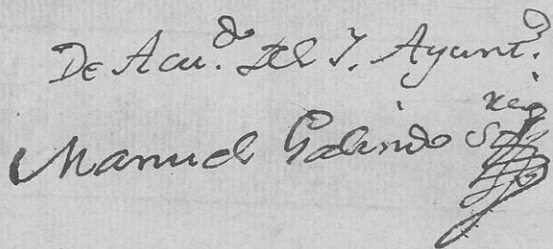 De Acu.do Del Y. Ayunt.o
Manuel Galindo